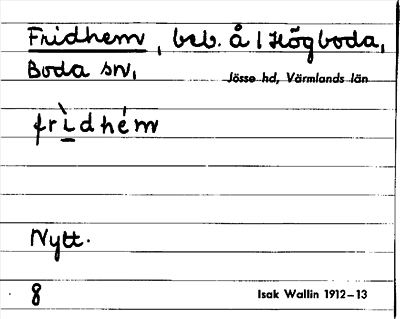 Fridhem, beb. å 1 Högboda,
Boda sn,
Jösse hd, Värmlands län
frìdhém
Nytt.
8
Isak Wallin 1912–13